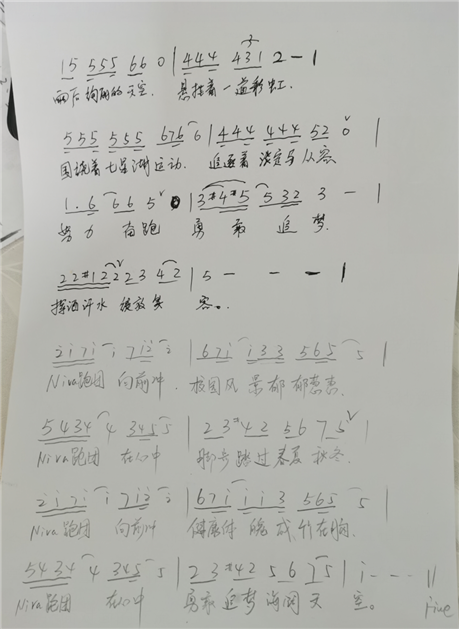 15 555 66 0 | 444 431 2 - |
雨后绚丽的天空. 悬挂着一道彩虹.
555 555 676 6 | 444 444 52 0 |
围绕着七星湖运动. 追逐着 淡定与从容
1. 6 6 6 5 0 | 3 #4 #5 5 32 3 - |
努力 奋跑 勇敢 追梦.
22#12 2 2 3 4 2 | 5 - - - |
挥洒汗水 绽放笑 容。
2i7i i 7i2 2 | 67i i33 565 5 |
Niva跑团 向前冲. 校园风 景郁 郁葱葱.
5434 4 345 5 | 2 3 #4 2 5 6 7 5 |
Niva跑团 在心中 脚步跳过春夏秋冬.
2i7i i 7i2 2 | 67i i i 3 565 5 |
Niva跑团 向前冲 健康体 魄 成竹在胸.
5434 4 345 5 | 2 3 #42 5 6 7 5 | i - - - ||
Niva跑团 在心中 勇敢追梦海阔天 空。 five